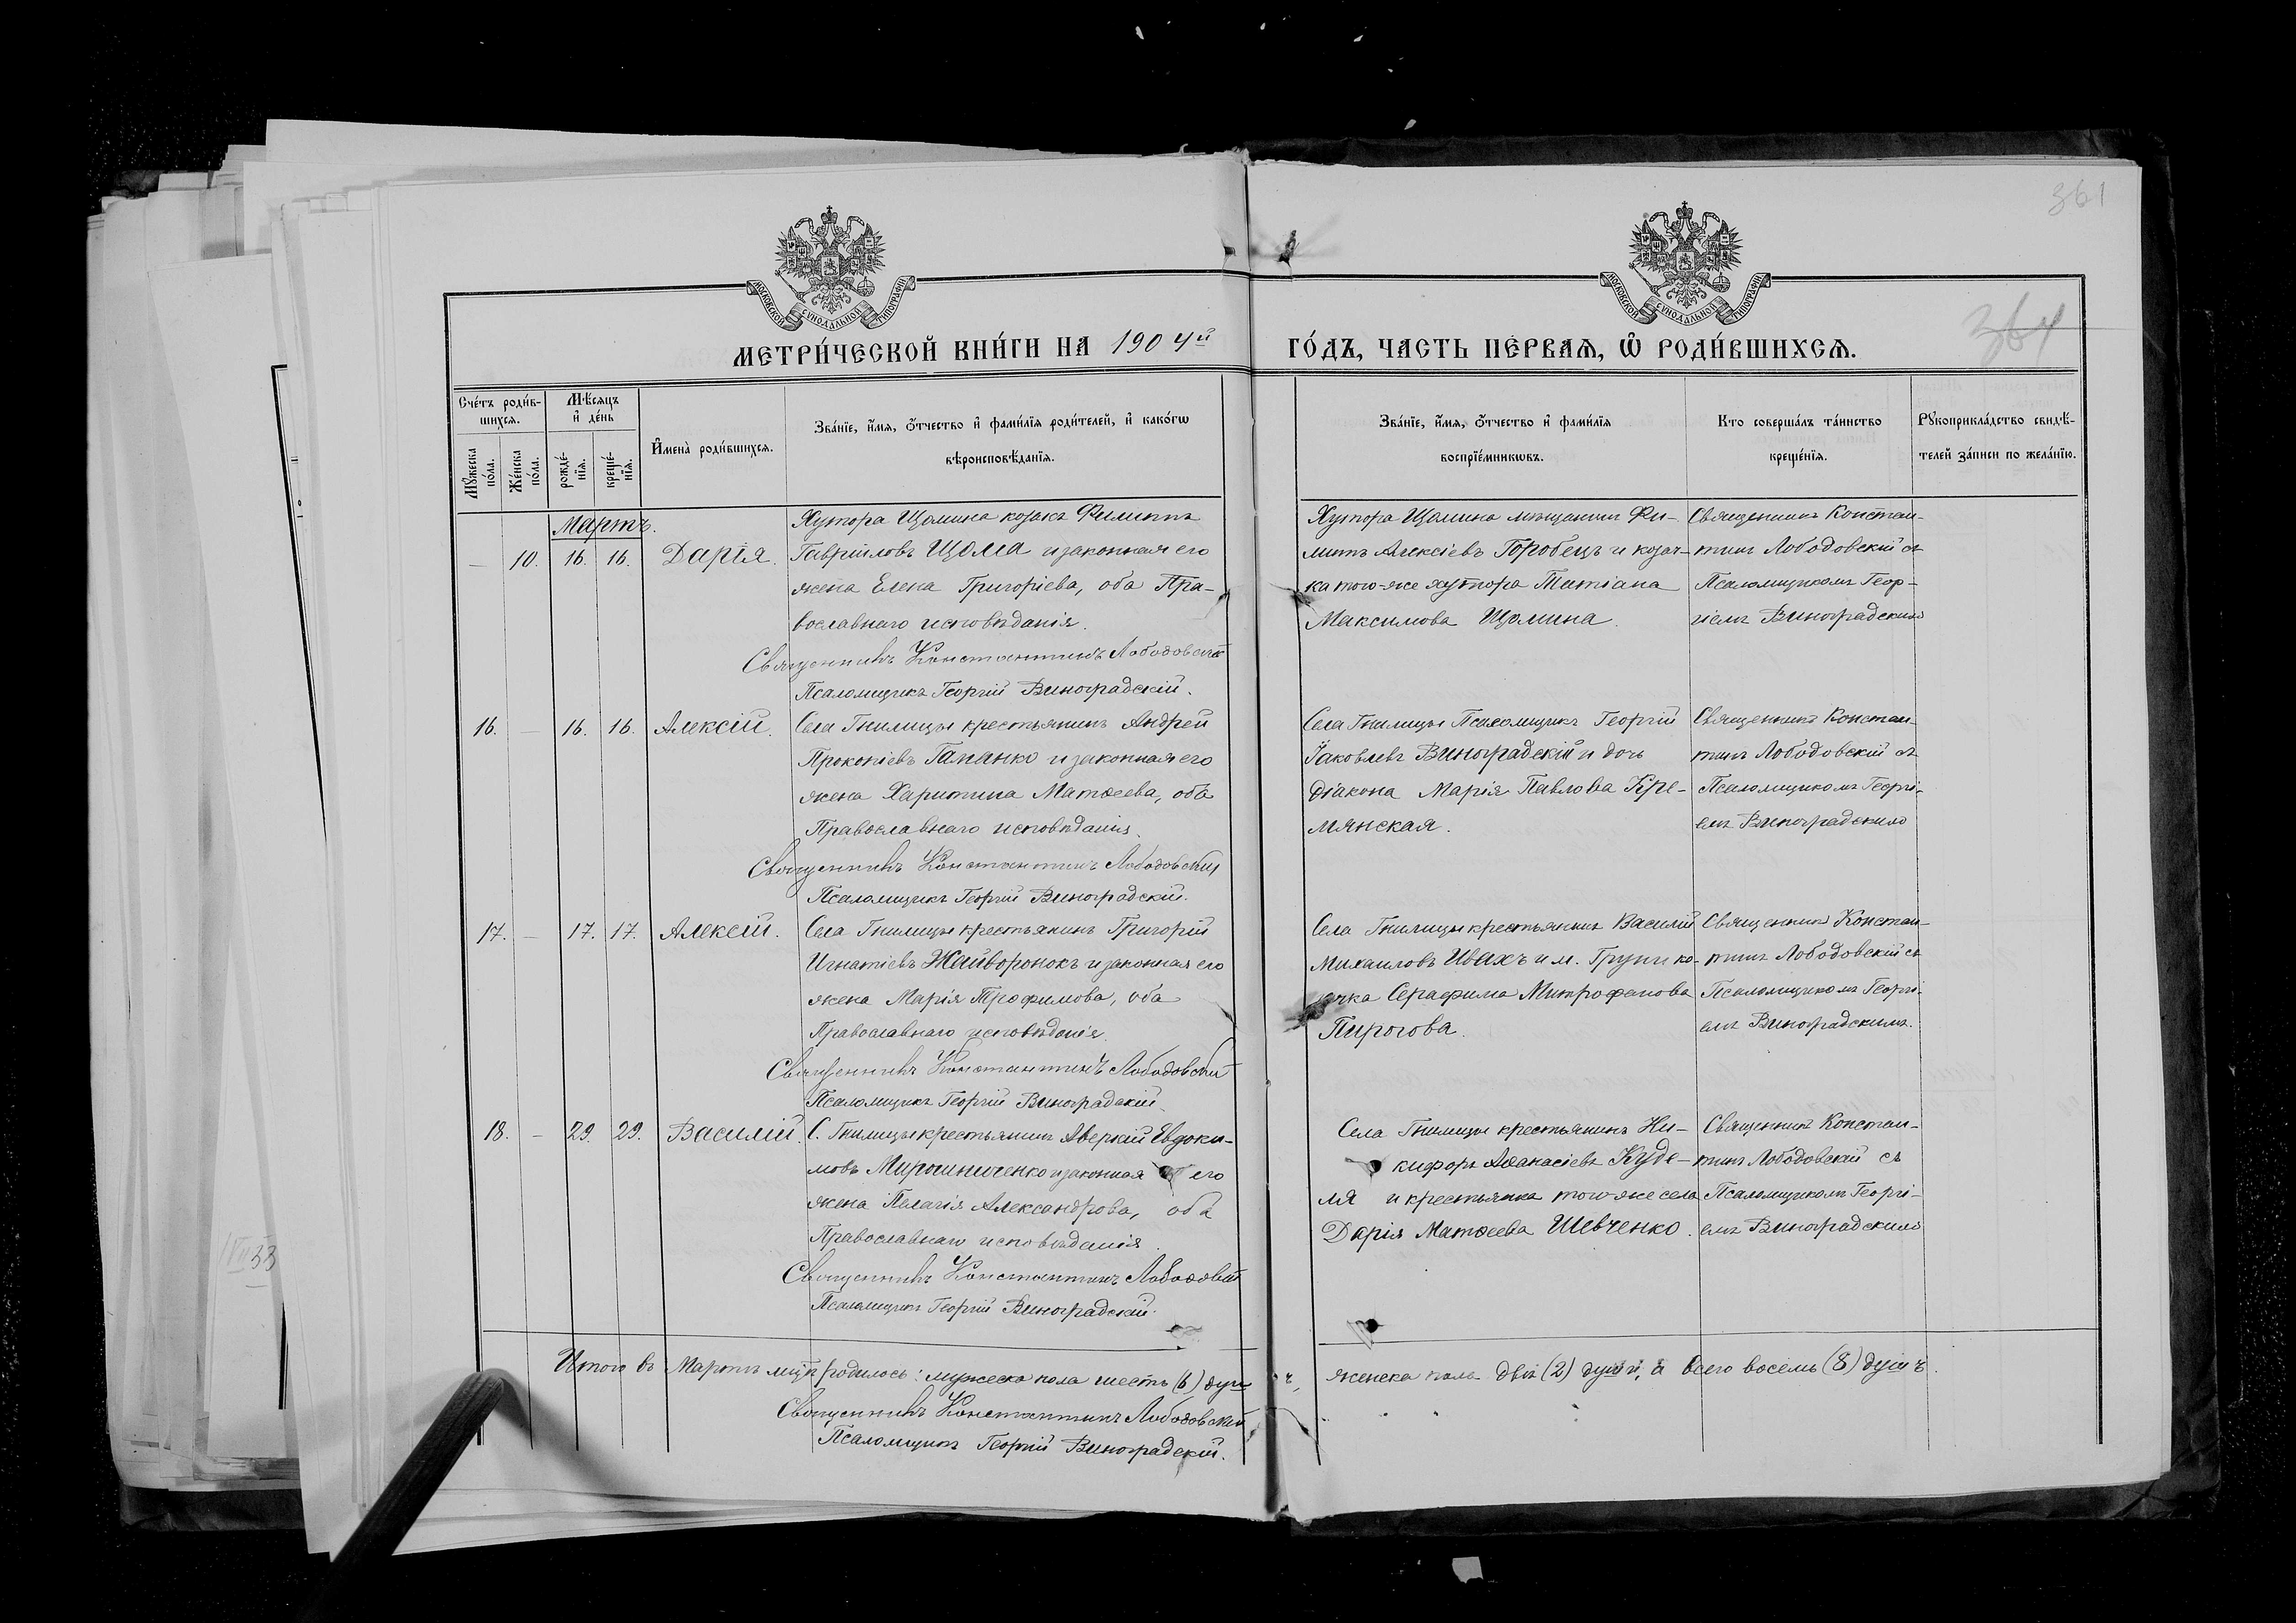 361
364
МОСКОВСКОЙ СѴНОДАЛЬНОЙ ТИПОГРАФІИ
МОСКОВСКОЙ СѴНОДАЛЬНОЙ ТИПОГРАФІИ
МЕТРИ́ЧЕСКОЙ КНИ́ГИ НА 1904й
ГО́ДЪ, ЧАСТЬ ПЕ́РВАѦ, Ѿ РОДИ́ВШИХСѦ.
Сче́тъ роди́в-
шихсѧ.
Мꙋ́жеска
по́ла.
Же́нска
по́ла.
Мѣ́сѧцъ
и҆ де́нь
рожде́-
нїѧ.
креще́-
нїѧ.
И҆мена̀ роди́вшихсѧ.
Зва́нїе, и҆́мѧ, ѻ҆́тчество и҆ фами́лїѧ роди́телей, и҆ како́гѡ
вѣроисповѣ́данїѧ.
Зва́нїе, и҆́мѧ, ѻ҆́тчество и҆ фами́лїѧ
воспрїе́мникѡвъ.
Кто соверша́лъ та́инство
креще́нїѧ.
Рꙋкоприкла́дство свидѣ́-
телей за́писи по жела́нїю.
Мартъ.
— 10. 16. 16. Дарія.
Хутора Щомина козакъ Филиппъ
Гавріиловъ Щома и законная его
жена Елена Григоріева, оба Пра-
вославнаго исповѣданія.
Священникъ Константинъ Лободовскій
Псаломщикъ Георгій Виноградскій.
Хутора Щомина мѣщанинъ Фи-
липъ Алексіевъ Горобецъ и козач-
ка того-же хутора Татіана
Максимова Щомина.
Священникъ Констан-
тинъ Лободовскій съ
Псаломщикомъ Геор-
гіемъ Виноградскимъ
16. — 16. 16. Алексій.
Села Гнилицы крестьянинъ Андрей
Прокопіевъ Таманко и законная его
жена Харитина Матѳеева, оба
Православнаго исповѣданія.
Священникъ Константинъ Лободовскій
Псаломщикъ Георгій Виноградскій.
Села Гнилицы Псаломщикъ Георгій
Іаковлевъ Виноградскій и дочь
діакона Марія Павлова Кре-
мянская.
Священникъ Констан-
тинъ Лободовскій съ
Псаломщикомъ Георгі-
емъ Виноградскимъ
17. — 17. 17. Алексій.
Села Гнилицы крестьянинъ Григорій
Игнатіевъ Жайворонокъ и законная его
жена Марія Трофимова, оба
Православнаго исповѣданія.
Священникъ Константинъ Лободовскій
Псаломщикъ Георгій Виноградскій
Села Гнилицы крестьянинъ Василій
Михаиловъ Ивахъ и м. Груни ко-
зачка Серафима Митрофанова
Пирогова.
Священникъ Констан-
тинъ Лободовскій съ
Псаломщикомъ Георгі-
емъ Виноградскимъ.
18. — 29. 29. Василій.
С. Гнилицы крестьянинъ Аверкій Евдоки-
мовъ Мирошниченко и законная его
жена Пелагія Александрова, оба
Православнаго исповѣданія.
Священникъ Константинъ Лободовскій
Псаломщикъ Георгій Виноградскій.
Села Гнилицы крестьянинъ Ни-
кифоръ Аѳанасіевъ Куде-
ля и крестьянка того-же села
Дарія Матѳеева Шевченко.
Священникъ Констан-
тинъ Лободовскій съ
Псаломщикомъ Георгі-
емъ Виноградскимъ
Итого въ Мартѣ мцѣ родилось: мужеска пола шесть (6) душъ, женска пола двѣ (2) души, а всего восемь (8) душъ.
Священникъ Константинъ Лободовскій
Псаломщикъ Георгій Виноградскій.